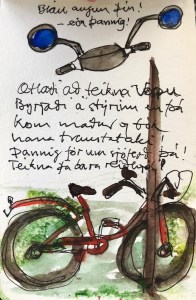 Blau augun þín!
- eða þannig!
Ætlaði að teikna Vespu
Byrjaði á stýrinu en þá
kom maður og tók
hana traustataki!
Þannig fór um sjóferð þá!
Teikna þá bara reiðhjól!